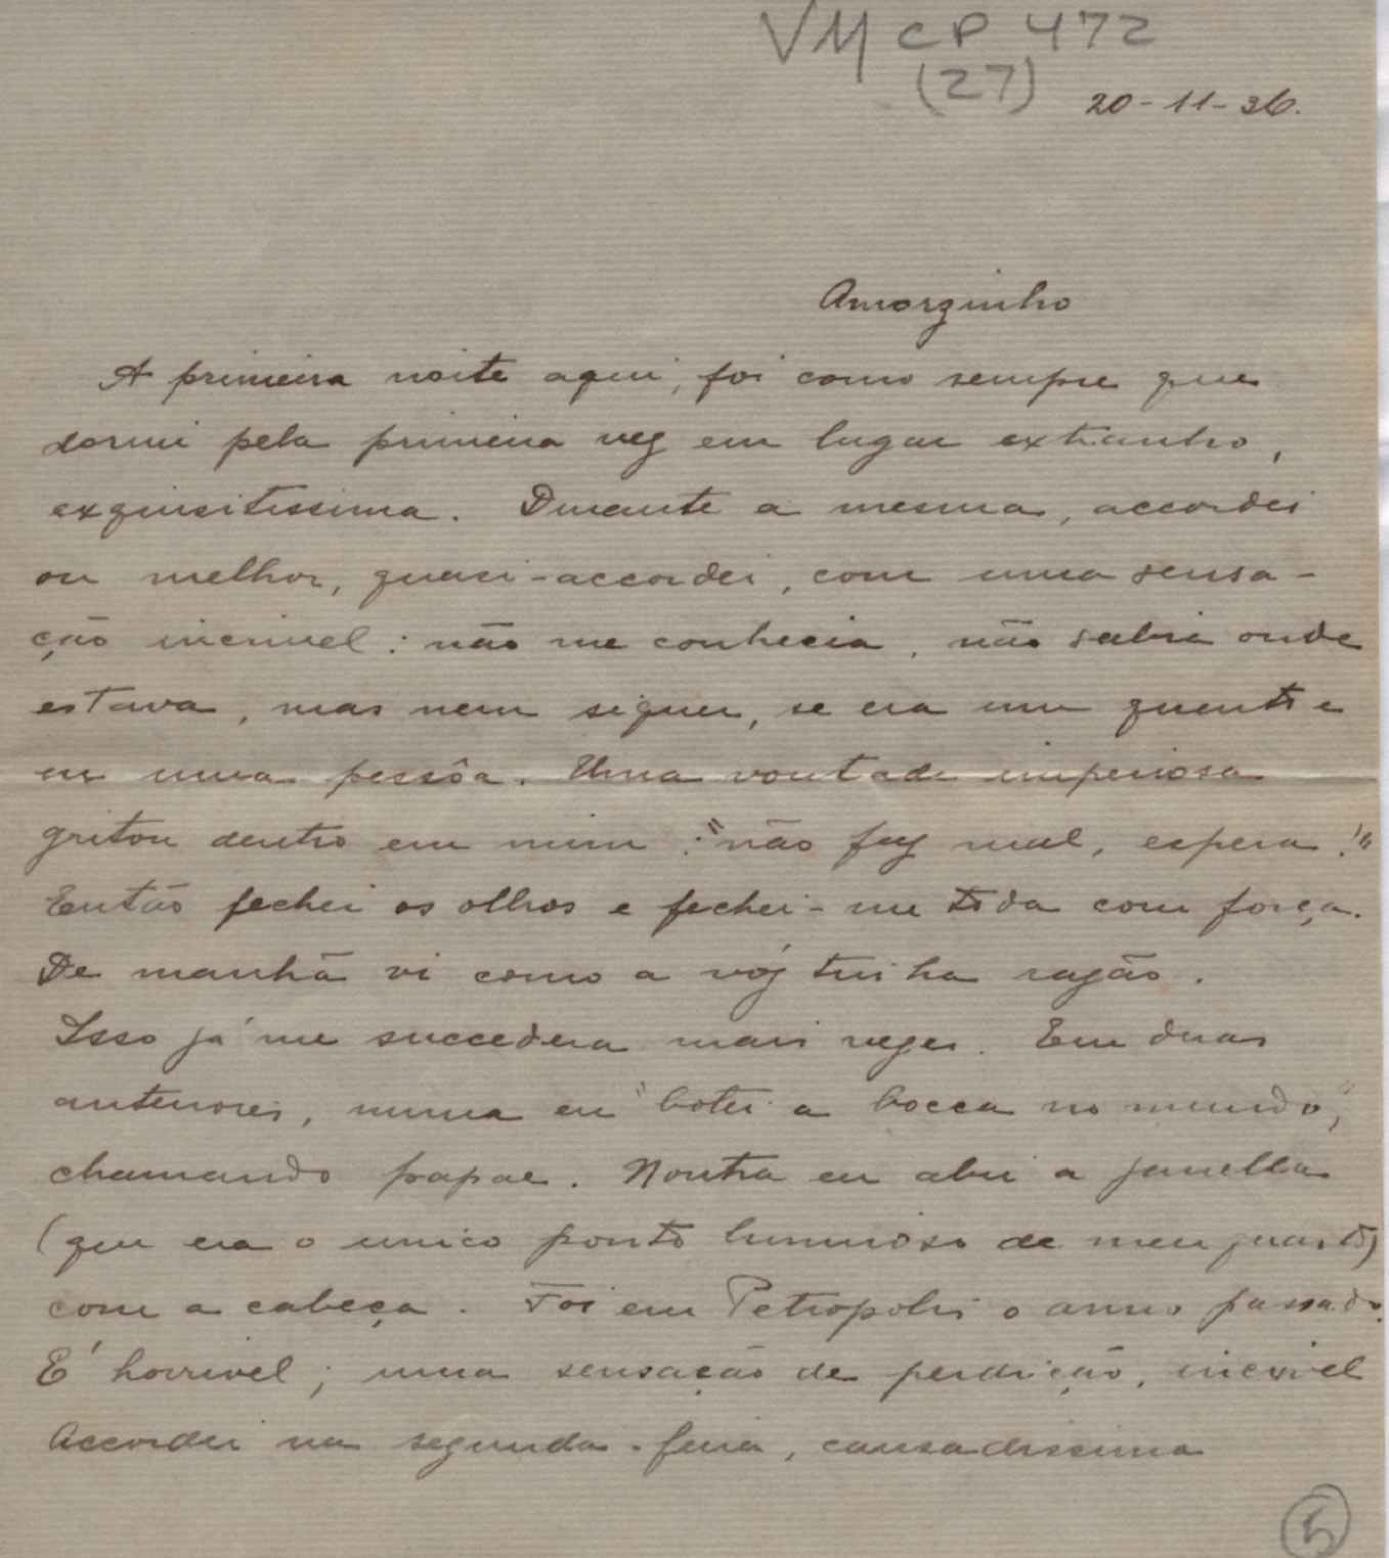 VM CP 472
(27)
20-11-36.
Amorzinho
A primeira noite aqui, foi como sempre que
dormi pela primeira vez em lugar extranho,
exquisitissima. Durante a mesma, accordei
ou melhor, quasi-accordei, com uma sensa-
ção incrivel: não me conhecia, não sabia onde
estava, mas nem siquer, se era um quente
ou uma pessôa. Uma vontade imperiosa
gritou dentro em mim: "não faz mal, espera!"
Então fechei os olhos e fechei-me toda com força.
De manhã vi como a vóz tinha razão.
Isso já me succedera mais vezes. Em duas
anteriores, numa eu "botei a bocca no mundo",
chamando papae. Noutra eu abri a janella
(que era o unico ponto luminoso de meu quarto)
com a cabeça. Foi em Petropolis o anno passado.
É horrivel; uma sensação de perdição, incrivel
Accordei na segunda-feira, cansadissima
5